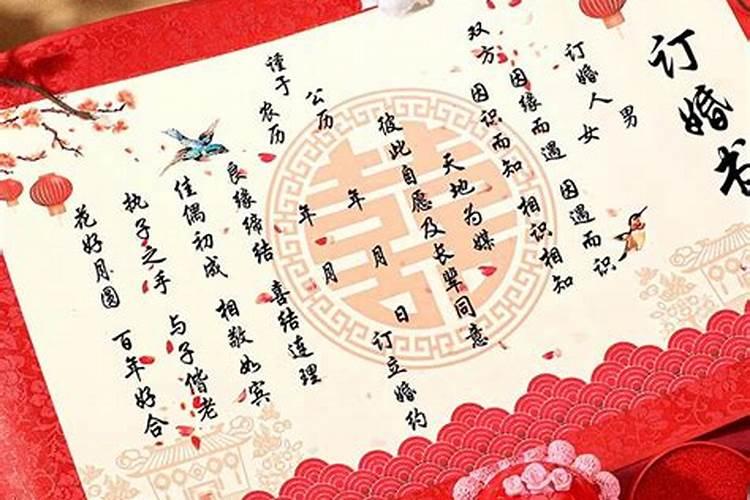 订婚书
男
订婚人 女
双方 因缘而遇 因遇而识
因识而知 相识相知
天地为媒
彼此自愿及长辈同意
谨于 公历 年 月 日
农历 年 月 订立婚约
良缘缔结 喜结连理
佳偶初成 相敬如宾
执子之手 与子偕老
花好月圆 百年好合